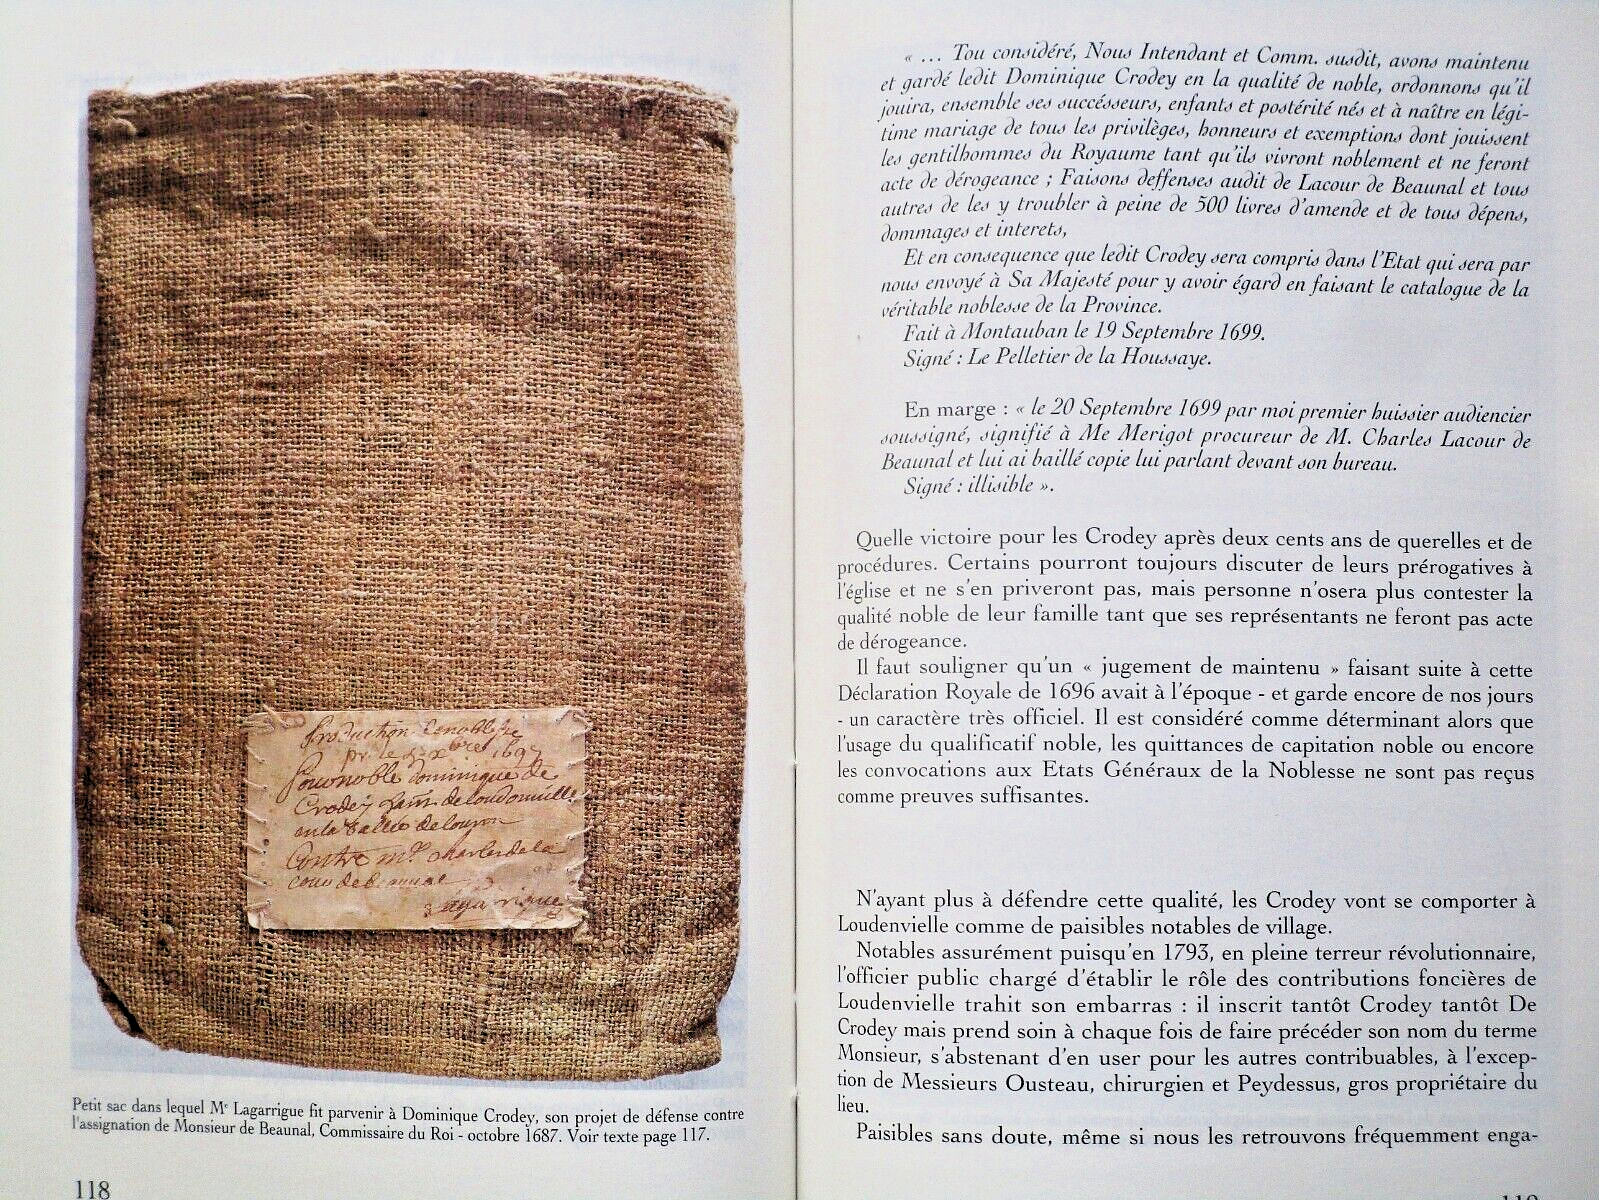 Production
1697
Pour noble dominique de
Crodey
en la vallee de louron
Contre mr charles de la
cour de beaunal
Lagarrigue
Petit sac dans lequel Me Lagarrigue fit parvenir à Dominique Crodey, son projet de défense contre
l'assignation de Monsieur de Beaunal, Commissaire du Roi - octobre 1687. Voir texte page 117.
118
« ... Tou considéré, Nous Intendant et Comm. susdit, avons maintenu
et gardé ledit Dominique Crodey en la qualité de noble, ordonnons qu'il
jouira, ensemble ses succésseurs, enfants et postérité nés et à naître en légi-
time mariage de tous les privilèges, honneurs et exemptions dont jouissent
les gentilhommes du Royaume tant qu'ils vivront noblement et ne feront
acte de dérogeance ; Faisons deffenses audit de Lacour de Beaunal et tous
autres de les y troubler à peine de 500 livres d'amende et de tous dépens,
dommages et interets,
Et en consequence que ledit Crodey sera compris dans l'Etat qui sera par
nous envoyé à Sa Majesté pour y avoir égard en faisant le catalogue de la
véritable noblesse de la Province.
Fait à Montauban le 19 Septembre 1699.
Signé : Le Pelletier de la Houssaye.
En marge : « le 20 Septembre 1699 par moi premier huissier audiencier
soussigné, signifié à Me Merigot procureur de M. Charles Lacour de
Beaunal et lui ai baillé copie lui parlant devant son bureau.
Signé : illisible ».
Quelle victoire pour les Crodey après deux cents ans de querelles et de
procédures. Certains pourront toujours discuter de leurs prérogatives à
l'église et ne s'en priveront pas, mais personne n'osera plus contester la
qualité noble de leur famille tant que ses représentants ne feront pas acte
de dérogeance.
Il faut souligner qu'un « jugement de maintenu » faisant suite à cette
Déclaration Royale de 1696 avait à l'époque - et garde encore de nos jours
- un caractère très officiel. Il est considéré comme déterminant alors que
l'usage du qualificatif noble, les quittances de capitation noble ou encore
les convocations aux Etats Généraux de la Noblesse ne sont pas reçus
comme preuves suffisantes.
N'ayant plus à défendre cette qualité, les Crodey vont se comporter à
Loudenvielle comme de paisibles notables de village.
Notables assurément puisqu'en 1793, en pleine terreur révolutionnaire,
l'officier public chargé d'établir le rôle des contributions foncières de
Loudenvielle trahit son embarras : il inscrit tantôt Crodey tantôt De
Crodey mais prend soin à chaque fois de faire précéder son nom du terme
Monsieur, s'abstenant d'en user pour les autres contribuables, à l'excep-
tion de Messieurs Ousteau, chirurgien et Peydessus, gros propriétaire du
lieu.
Paisibles sans doute, même si nous les retrouvons fréquemment enga-